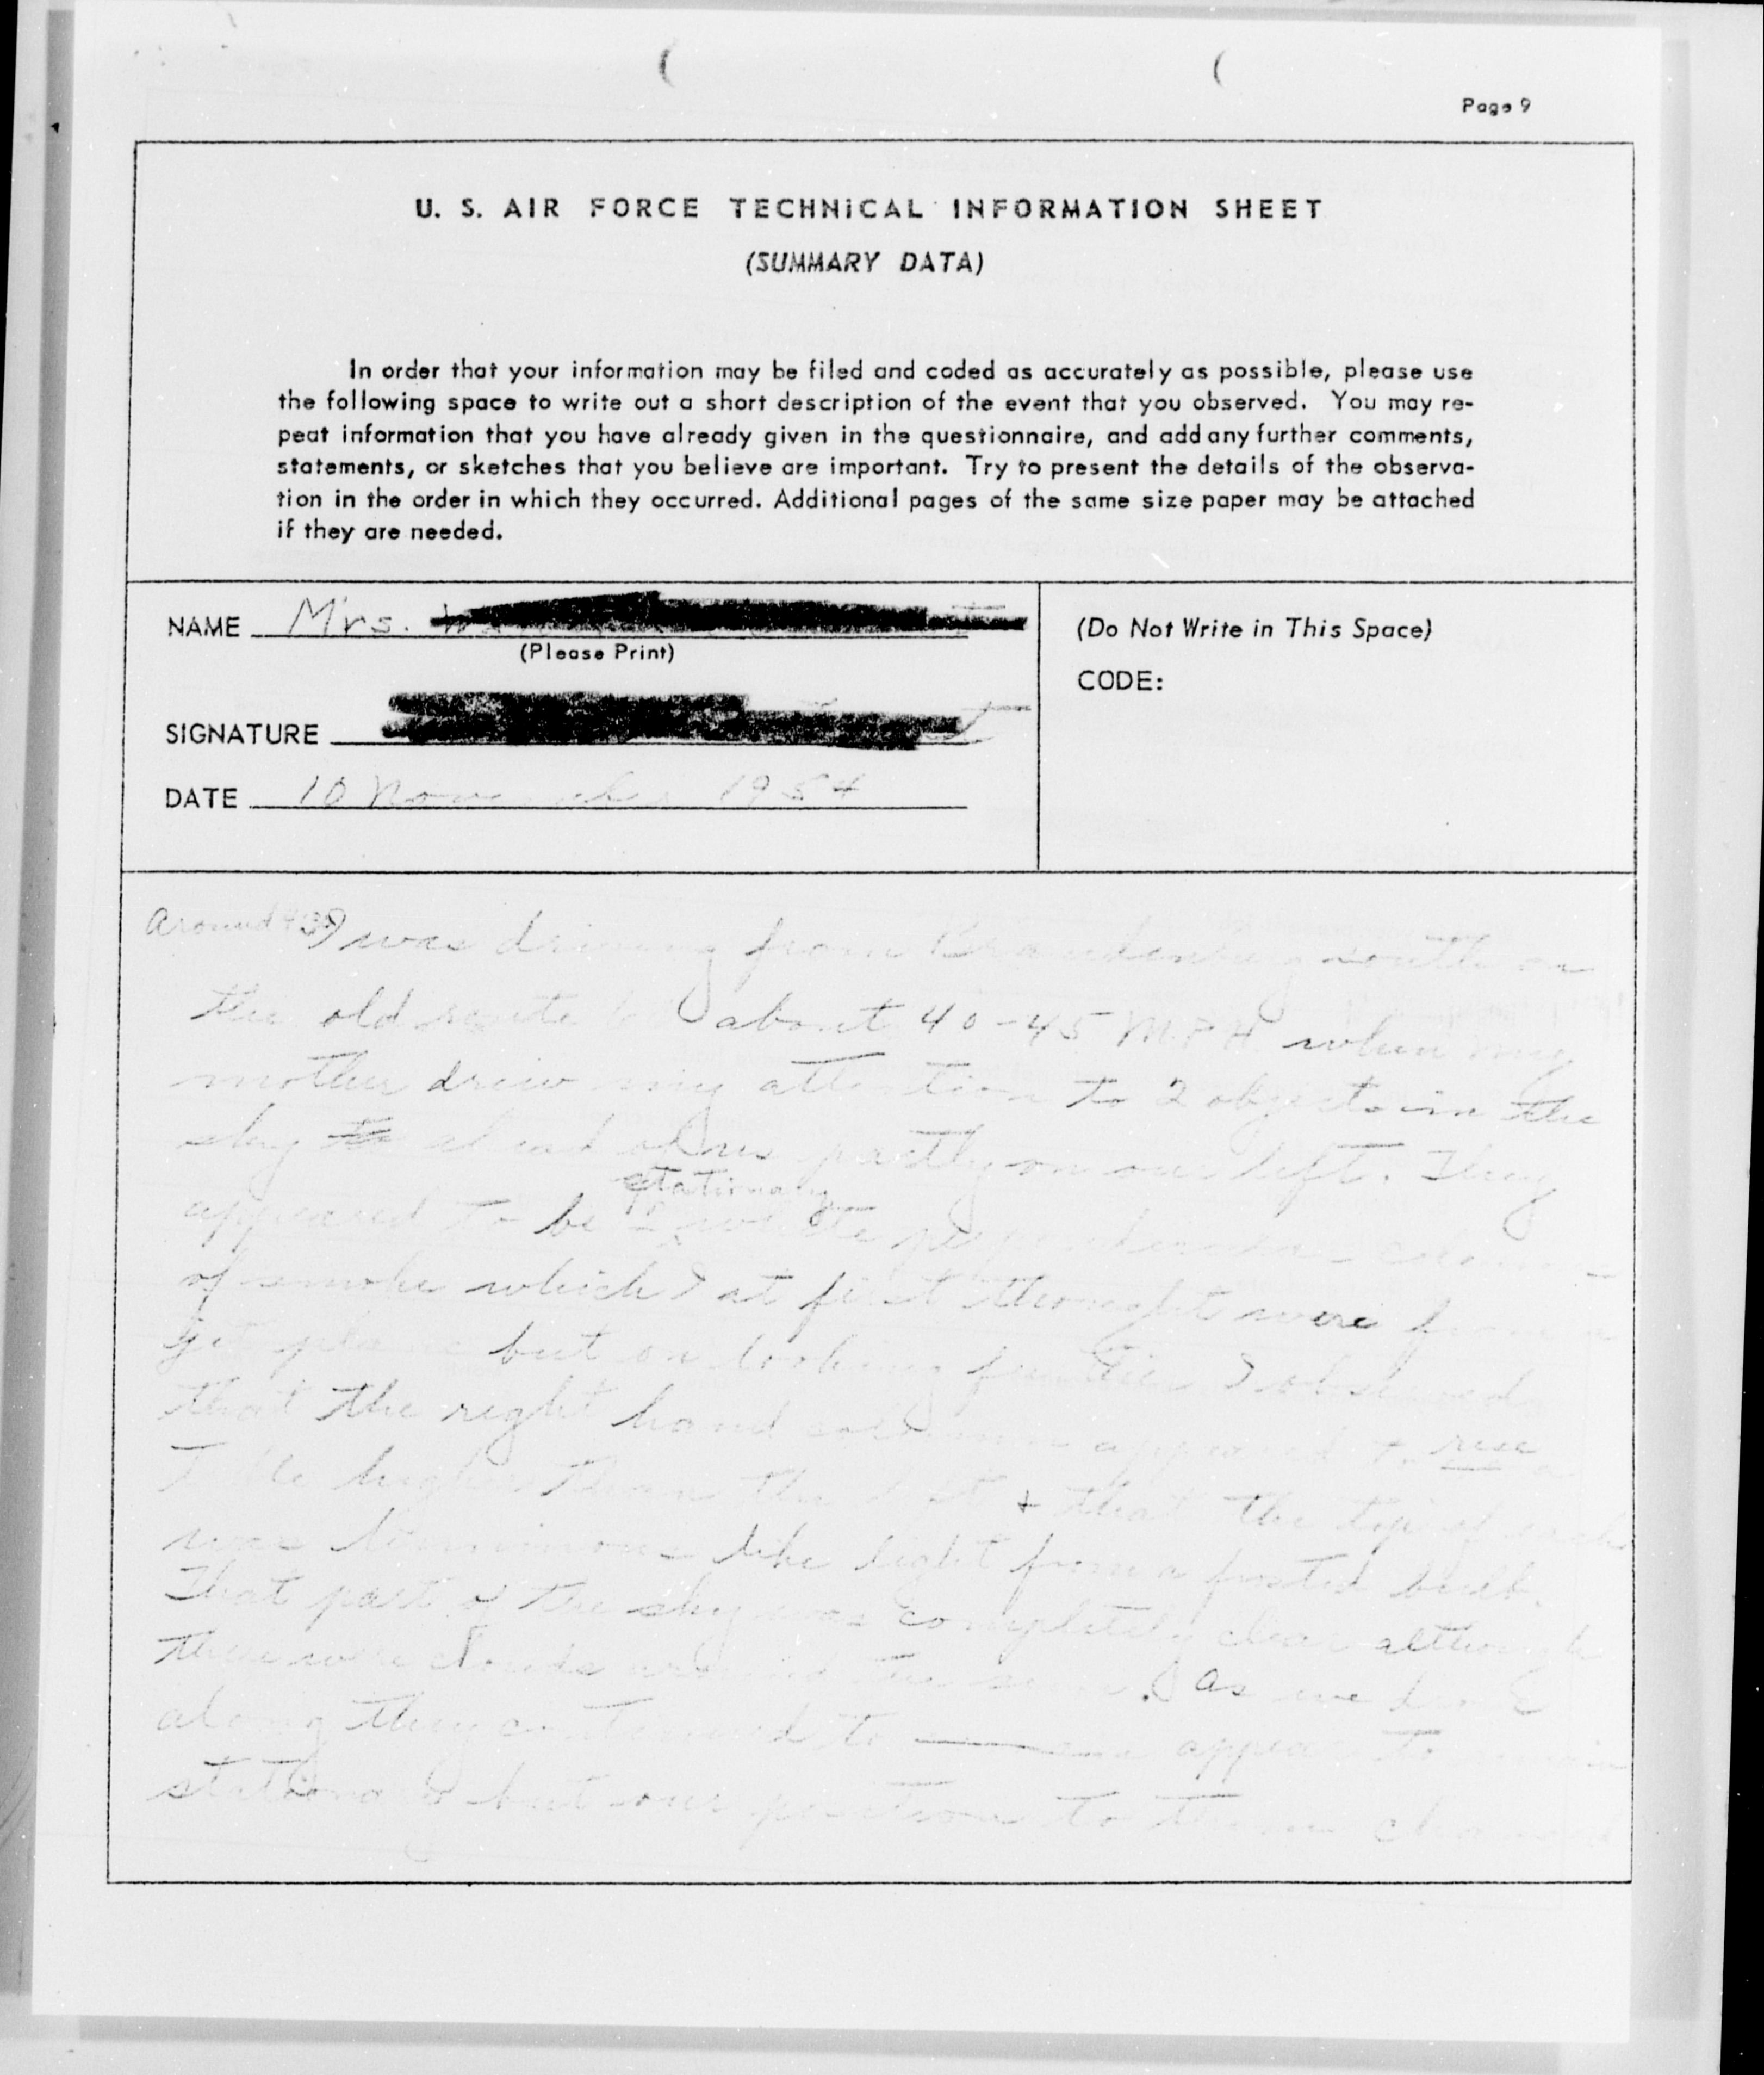 Page 9
U. S. AIR FORCE TECHNICAL INFORMATION SHEET
(SUMMARY DATA)
In order that your information may be filed and coded as accurately as possible, please use
the following space to write out a short description of the event that you observed. You may re-
peat information that you have already given in the questionnaire, and add any further comments,
statements, or sketches that you believe are important. Try to present the details of the observa-
tion in the order in which they occurred. Additional pages of the same size paper may be attached
if they are needed.
NAME Mrs.
(Please Print)
SIGNATURE
DATE 10 November 1954
(Do Not Write in This Space)
CODE:
Around I was driving from Brandenburg south on
the old route about 40-45 MPH when my
mother drew my attention to 2 objects in the
sky ahead of us partly on our left. They
stationary
appeared to be 2 white perpendicular columns
of smoke which I at first thought were from a
jet plane but on looking further I observed
that the right hand column appeared to rise a
little higher than the left & that the tip of each
was luminous like light from a frosted bulb.
That part of the sky was completely clear although
there were clouds around the sun. As we drove
along they continued to appear to remain
stationary but our position to them changed